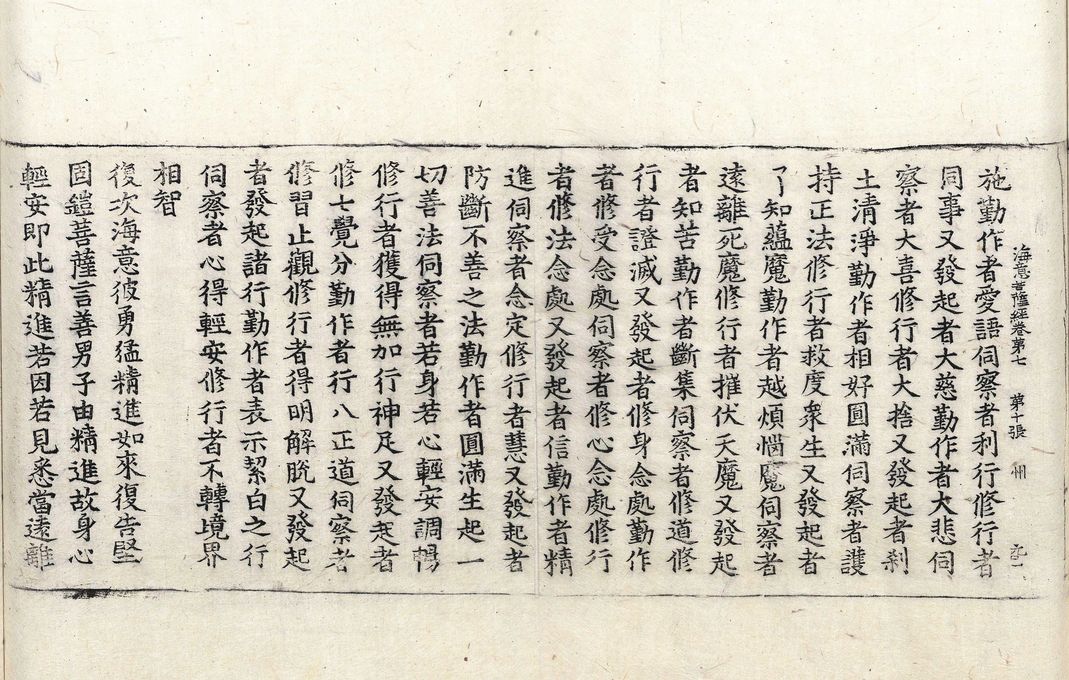 海意菩薩經卷第七 第十張 州
施勤作者愛語伺察者利行修行者
同事又發起者大慈勤作者大悲伺
察者大喜修行者大捨又發起者刹
土清淨勤作者相好圓滿伺察者護
持正法修行者救度衆生又發起者
了知蘊魔勤作者越煩惱魔伺察者
遠離死魔修行者摧伏天魔又發起
者知苦勤作者斷集伺察者修道修
行者證滅又發起者修身念處勤作
者修受念處伺察者修心念處修行
者修法念處又發起者信勤作者精
進伺察者念定修行者慧又發起者
防斷不善之法勤作者圓滿生起一
切善法伺察者若身若心輕安調暢
修行者獲得無加行神足又發起者
修七覺分勤作者行八正道伺察者
修習止觀修行者得明解脫又發起
者發起諸行勤作者表示潔白之行
伺察者心得輕安修行者不轉境界
相智
復次海意彼勇猛精進如來復告堅
固鎧菩薩言善男子由精進故身心
輕安即此精進若因若見悉當遠離